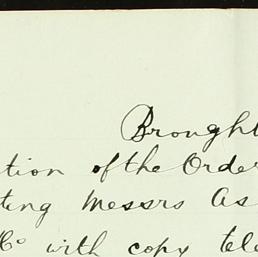 Brought
tion of the Order
ting Messrs As
& Co with copy tele